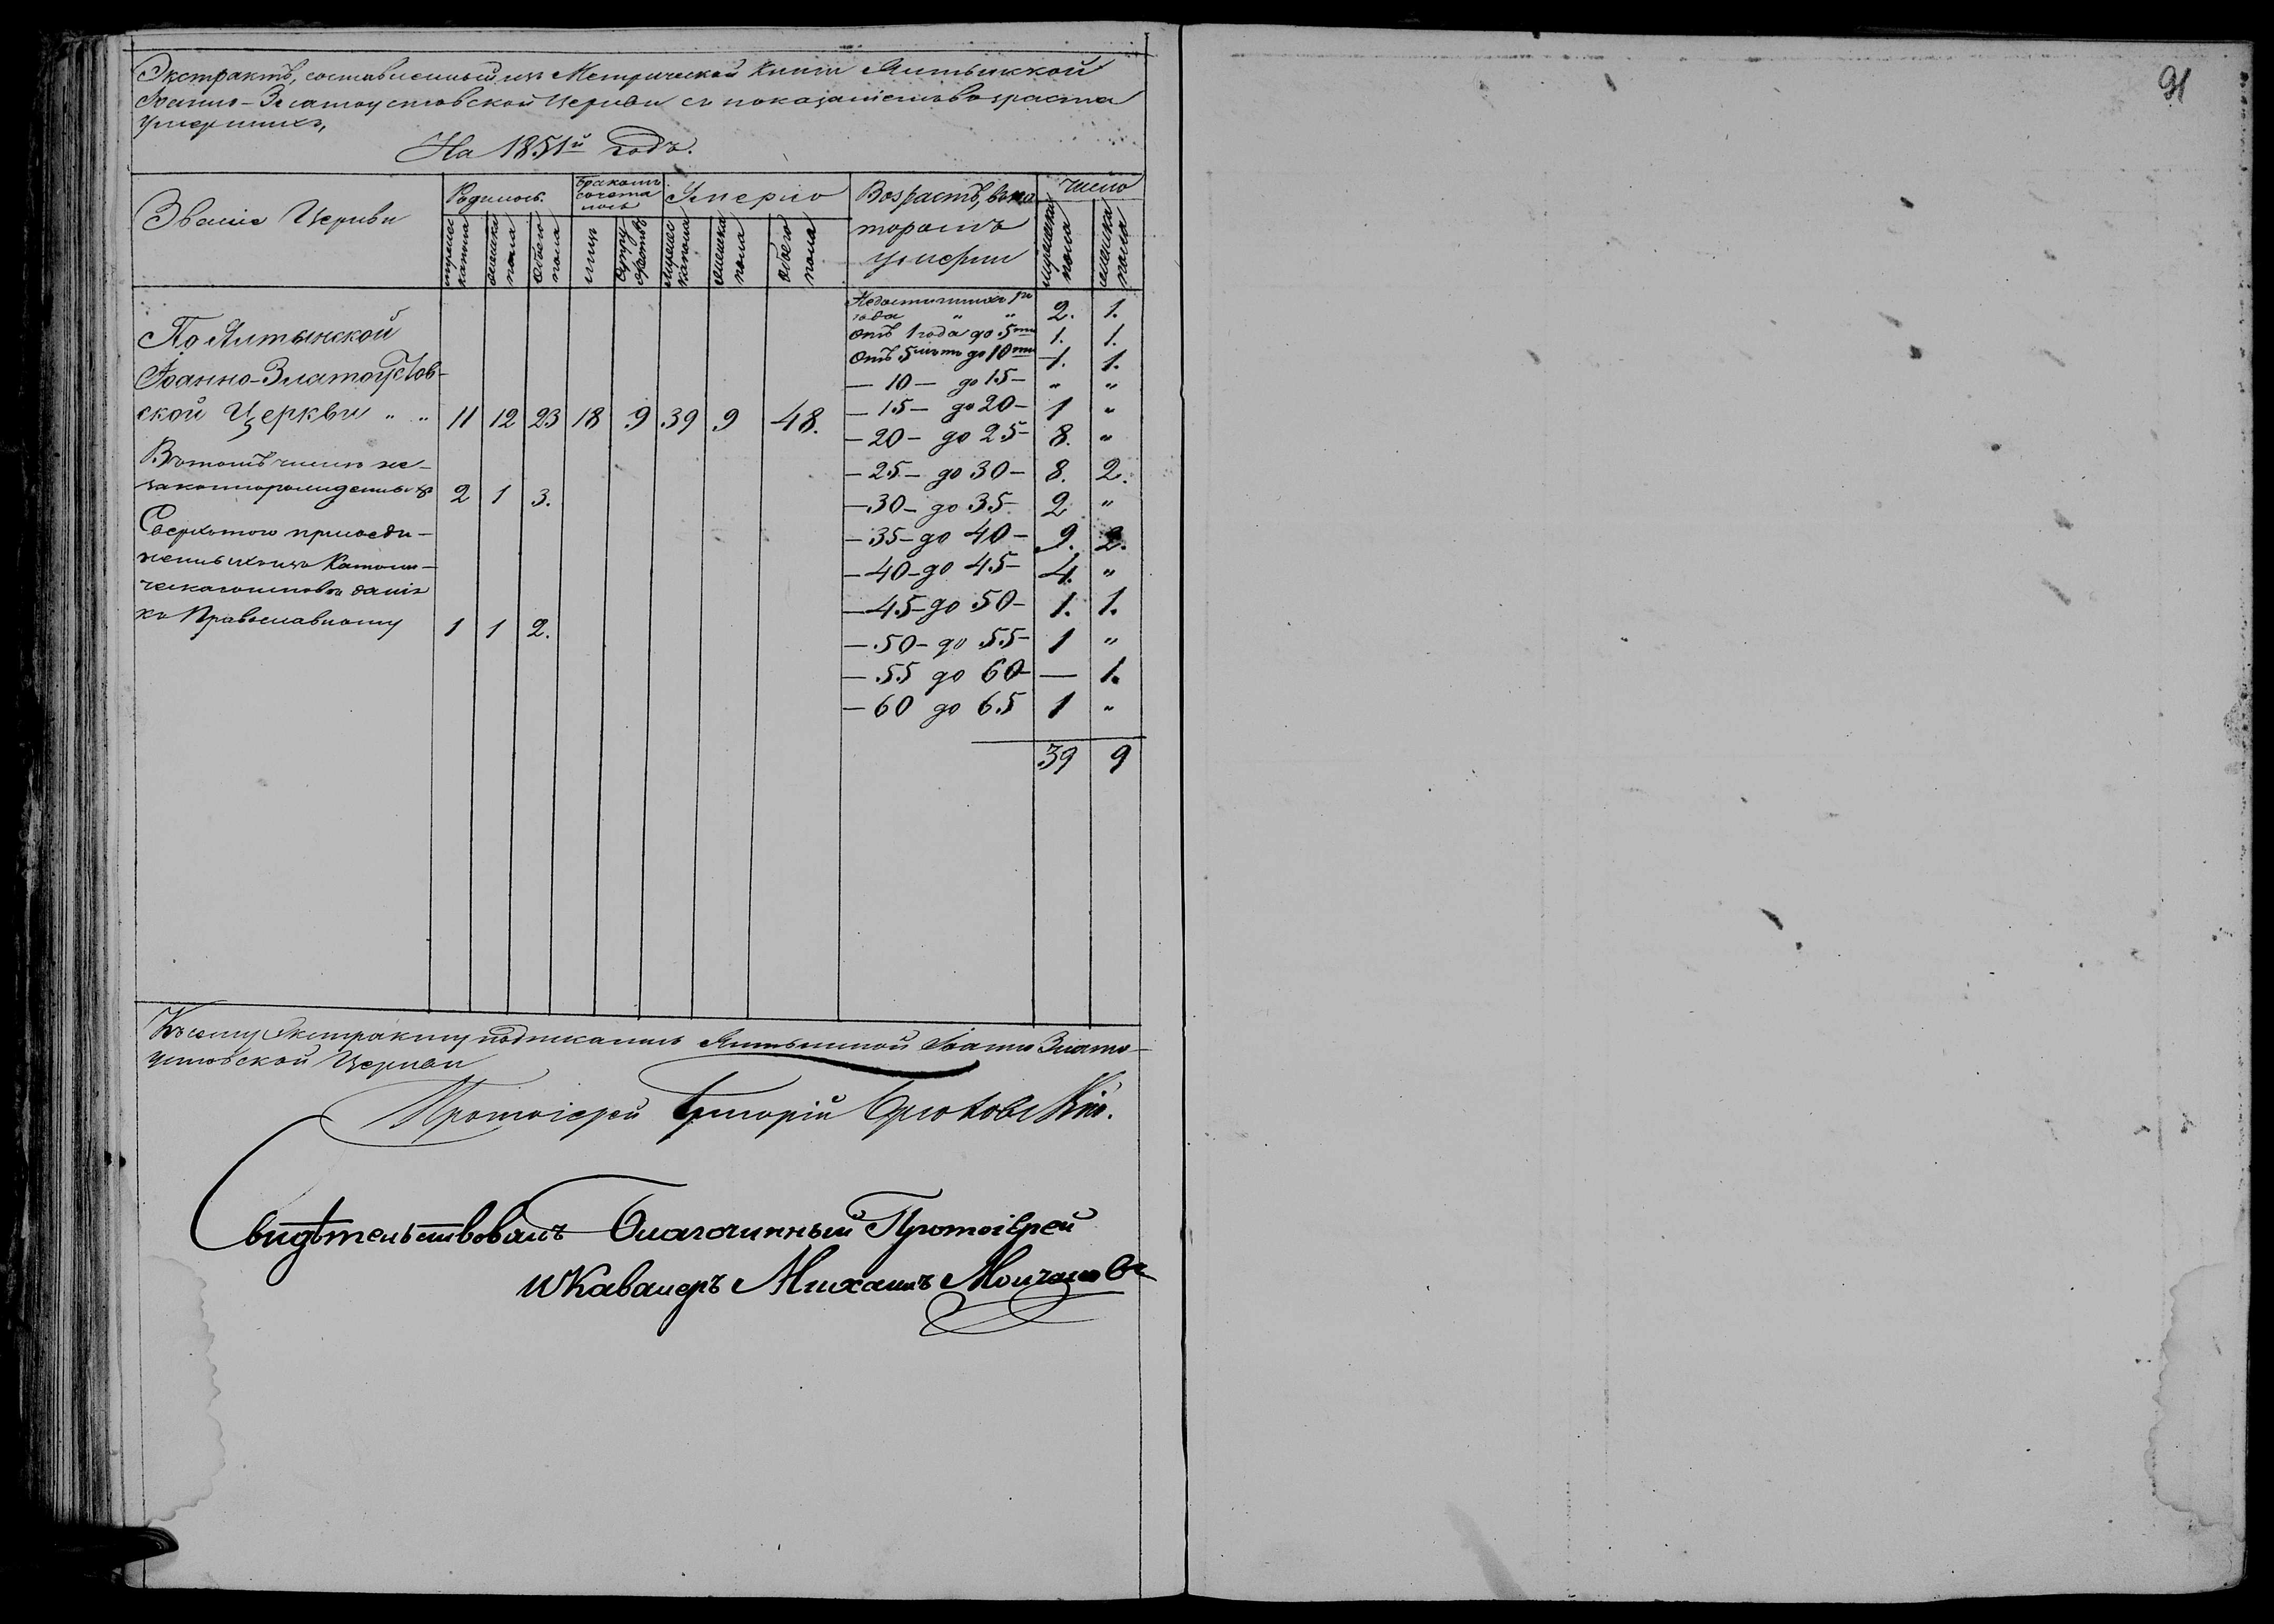 Экстрактъ, составленный изъ Метрической Книги Ялтынской
Іоанно-Златоустовской Церкви съ показаніемъ возраста
умершихъ,
На 1851й годъ.
Званіе Церкви
Родилось.
мужескa пола
женска пола
обоего пола
бракомъ сочеталось
лицъ
супружествъ
Умерло
мужеска пола
женска пола
обоего пола
Возрастъ, въ ко
торомъ
умерли
Число
мужеска пола
женска пола
По Ялтынской
Іоанно-Златоустов-
ской Церкви „ „ 11 12 23 18 9 39 9 48.
Въ томъ числѣ не-
законнорожденныхъ 2 1 3.
Сверхъ того присоеди-
ненныхъ изъ Католи-
ческаго исповѣданія
къ Православному 1 1 2.
Недостигшихъ 1го
года „ „ 2. 1.
Отъ 1 года до 5ти 1. 1.
Отъ 5 лѣтъ до 10ти 1. 1.
— 10 — до 15 — „ „
— 15 — до 20 — 1 „
— 20 — до 25 — 8. „
— 25 — до 30 — 8. 2.
— 30 — до 35 — 2 „
— 35 — до 40 — 9. 2.
— 40 — до 45 — 4. „
— 45 — до 50 — 1. 1.
— 50 — до 55 — 1 „
— 55 до 60 — — 1.
— 60 до 65 1 „
39 9
Къ сему Экстракту подписались Ялтынской Іоанно Злато-
устовской Церкви
Протоіерей
Свидѣтельствовалъ Благочинный Протоіерей
и Кавалеръ Михаилъ Молчановъ
91